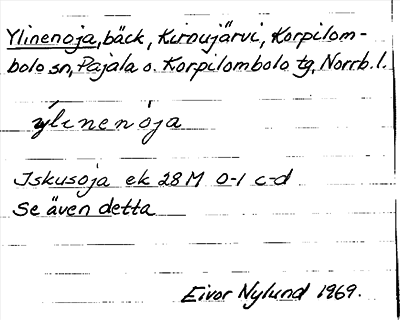 Ylinenoja, bäck, Kirnujärvi, Korpilom-
bolo sn, Pajala o. Korpilombolo tg, Norrb. l.
ylinenòja
Iskusoja ek 28M 0-1 c-d
Se även detta
Eivor Nylund 1969.